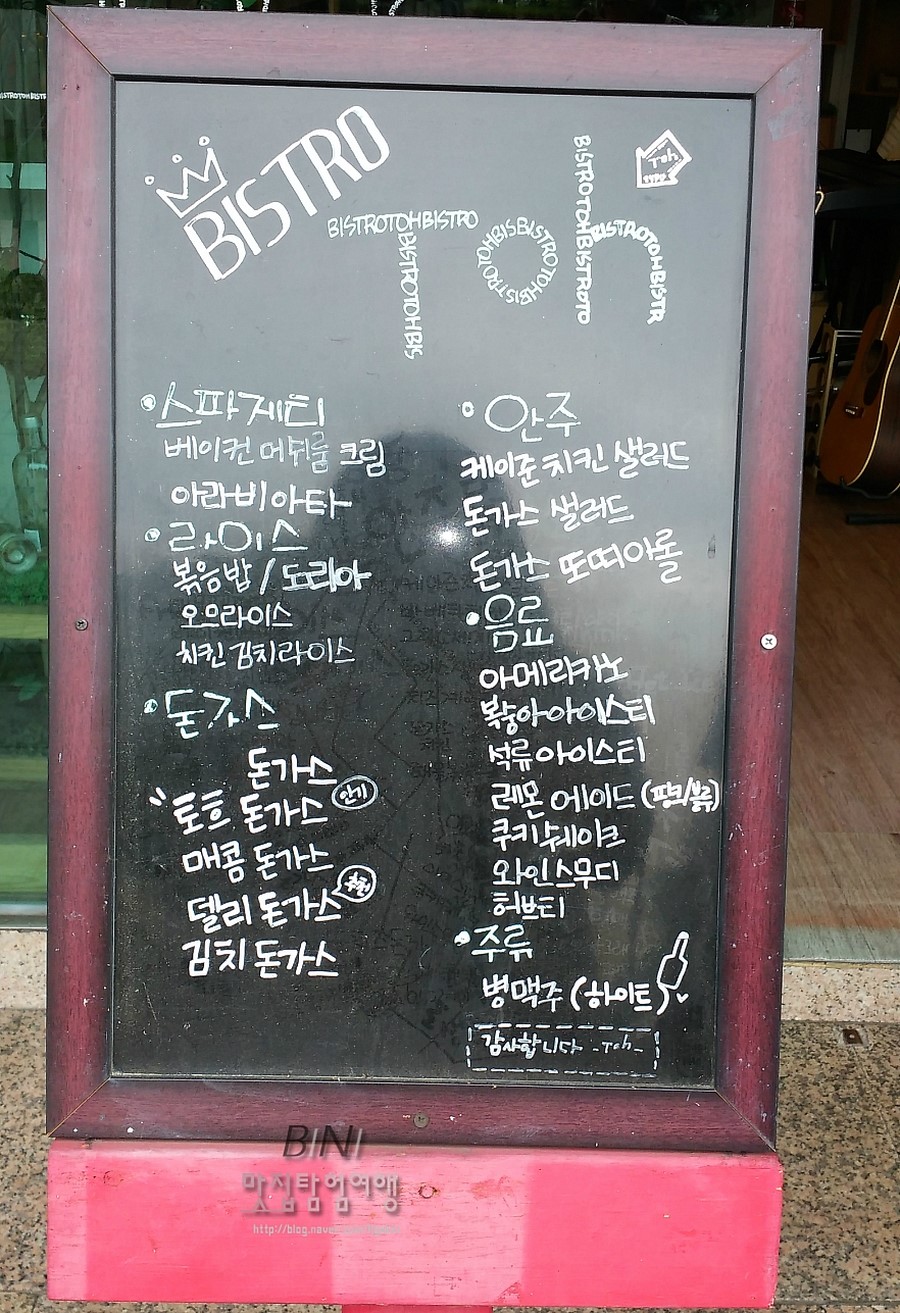 BISTRO
Toh
BISTROTOHBISTRO
BISTROTOHBIS
Toh
• 스파게티
베이컨 머쉬룸 크림
아라비아타
• 라이스
볶음밥 / 도리아
오므라이스
치킨 김치라이스
• 돈가스
돈가스
토흐 돈가스 인기
매콤 돈가스
델리 돈가스 추천
김치 돈가스
• 안주
케이준 치킨 샐러드
돈가스 샐러드
돈가스 또띠아롤
• 음료
아메리카노
복숭아 아이스티
석류 아이스티
레몬 에이드 (핑크/블루)
쿠키쉐이크
와인스무디
허브티
• 주류
병맥주 (하이트)
감사합니다 -Toh-
BINI
맛집탐험여행